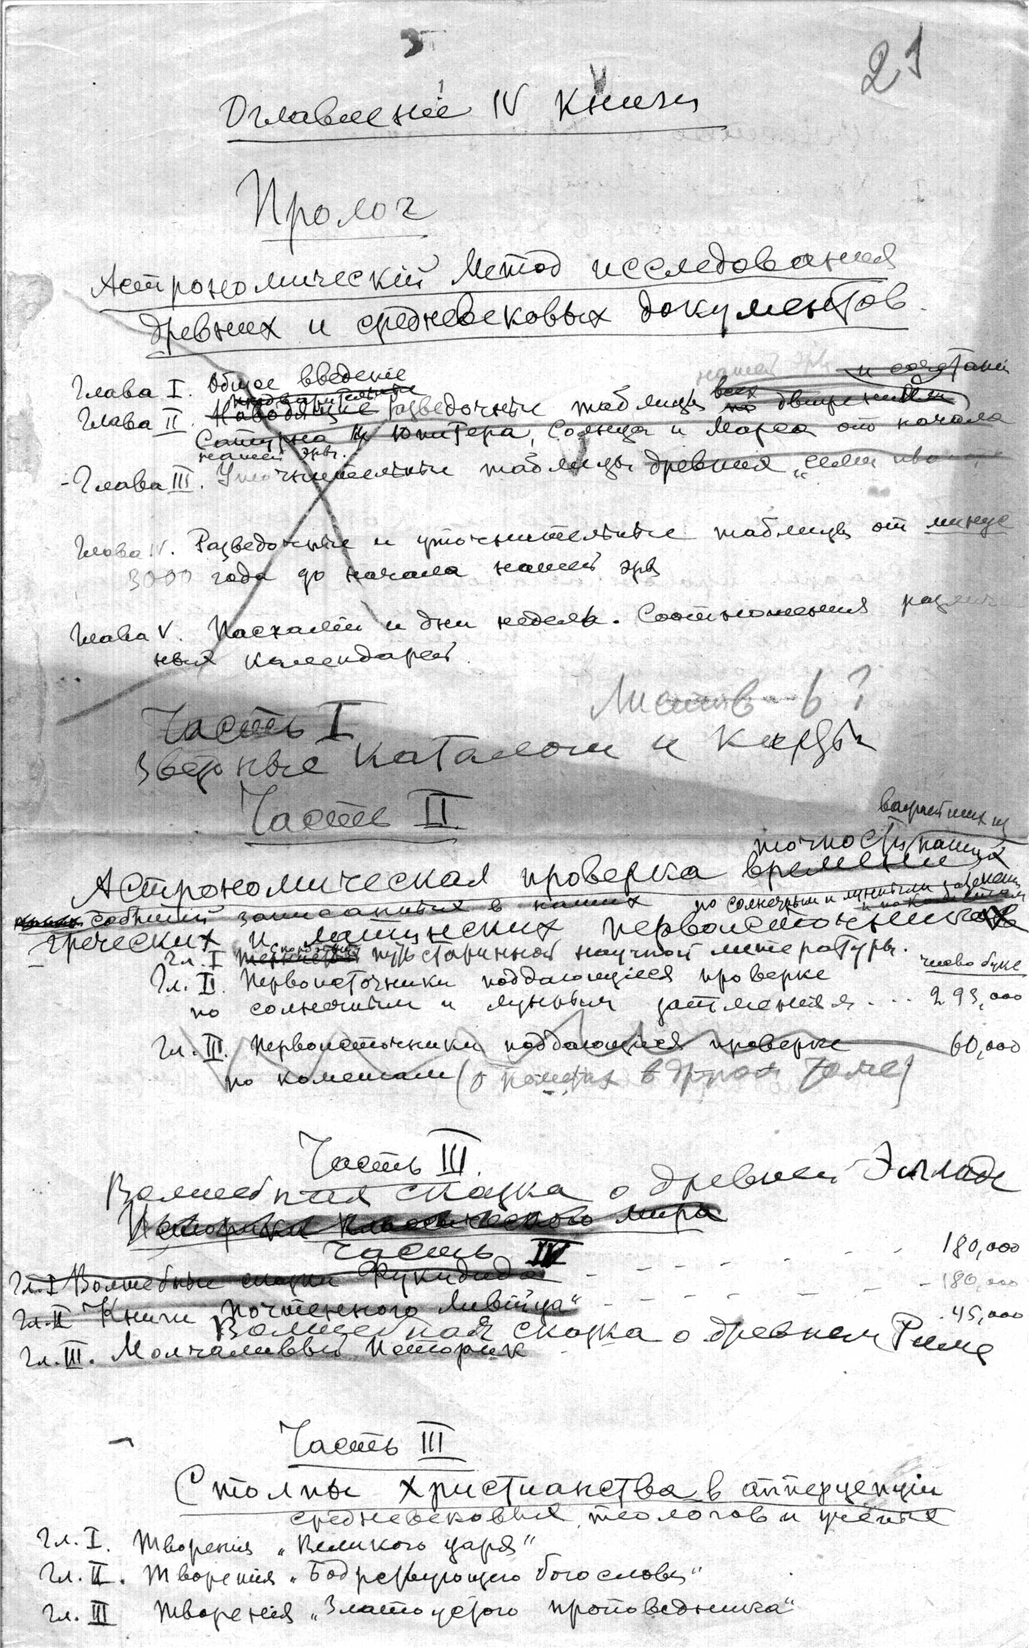 21
Оглавленіе IV Книги
Пролог
Астрономическій метод исследования
древних и средневековых документов.
нашей эры и сочетаний
Глава I. Общее введение
предварительные всех
Глава II. Наводящие разведочные таблицы по движениям
Сатурна и Юпитера, Солнца и Марса от начала
нашей эры.
Глава III. Уточнительные таблицы древния
Глава IV. Разведочные и уточнительные таблицы от минус
3000 года до начала нашей эры
Глава V. Пасхалии и дни недели. Соотношения
ных календарей.
Листов
Часть I
Звездные каталоги и карты
Часть II
важнейших и
точности наших
Астрономическая проверка времени
событий записанных в наших по солнечным и лунным затмениям
греческих и латинских первоисточниках
Гл. I старинной научной литературы.
число букв
Гл. II. Первоисточники поддающиеся проверке
по солнечным и лунным затмениям... 293,000
Гл. III. Первоисточники поддающиеся проверке 60,000
по кометам (о кометах в другом томе)
Часть III.
Волшебная сказка о древней Элладе
Историки классического мира
Часть IV
180,000
Гл. I Волшебные сказки Фукидида 180,000
Гл. II Книги "почтенного Ливийца" 45,000
Волшебная сказка о древнем Риме
Гл. III. Молчаливый Историк
Часть III
Столпы христианства в апперцепции
средневековых теологов и ученых
Гл. I. Творения „Великого царя"
Гл. II. Творения „Бодрствующего богослова"
Гл. III Творения „Златоустого проповедника"